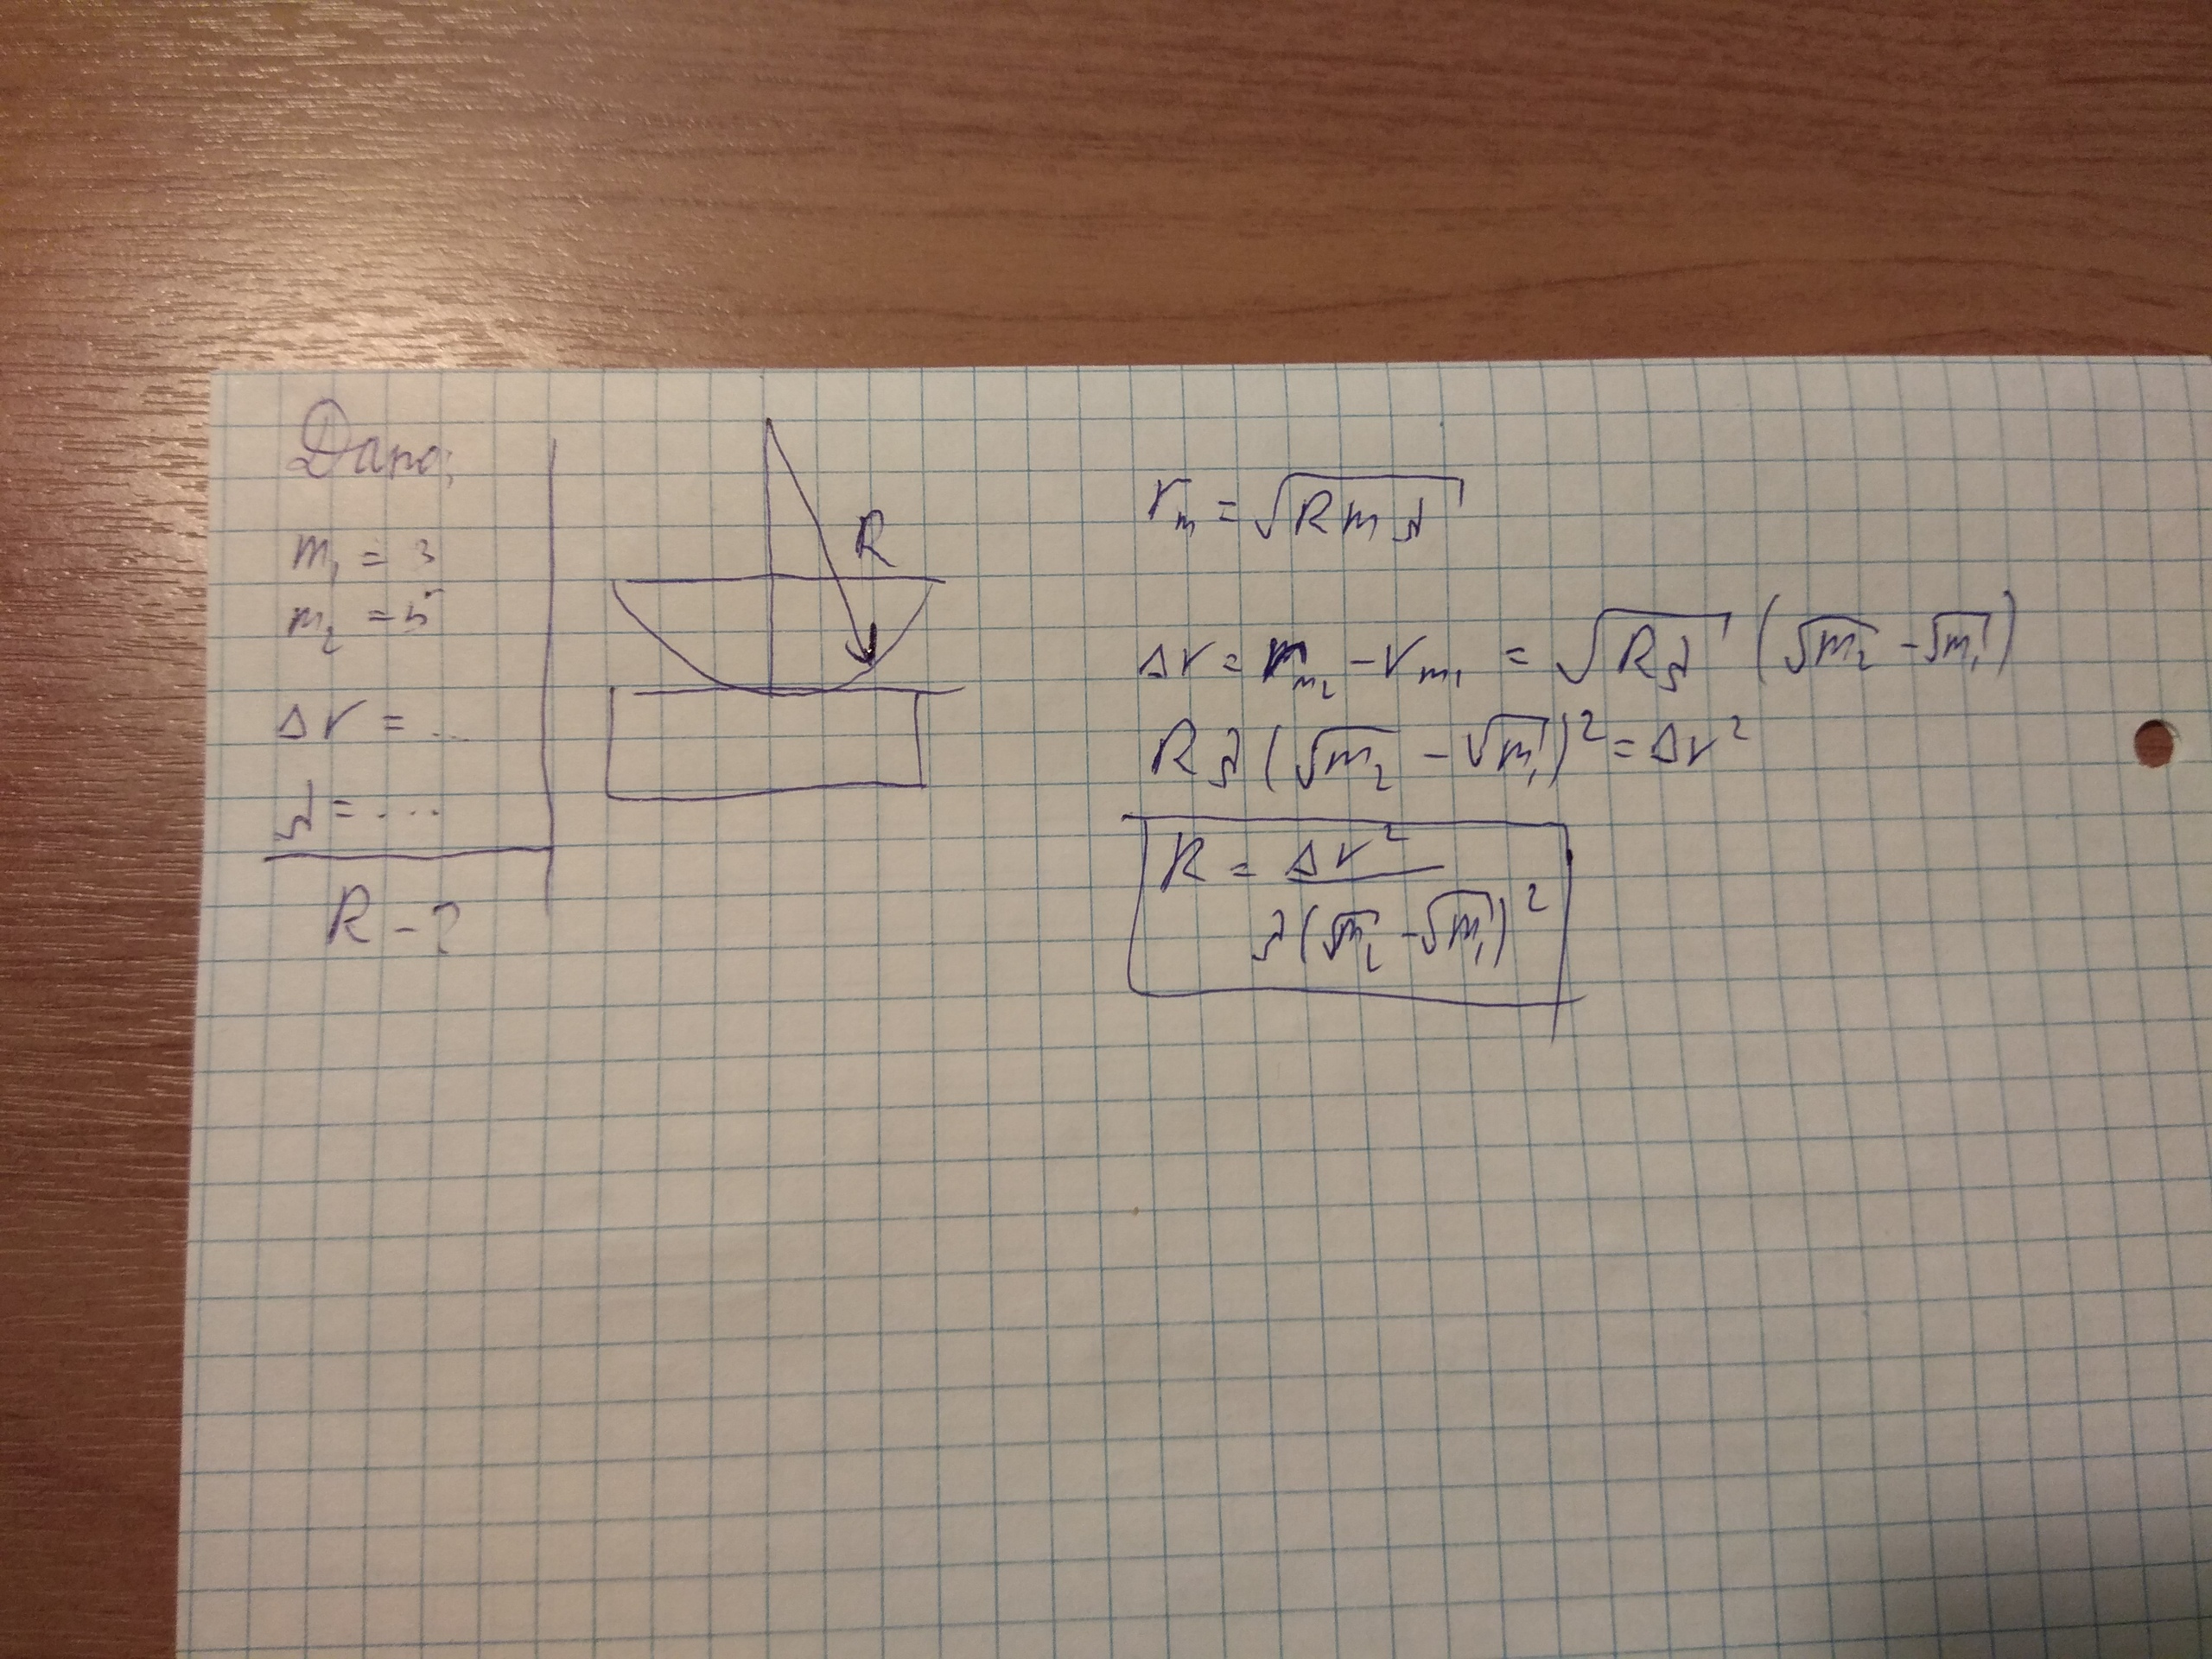 Дано:
m₁ = 3
m₂ = 5
Δr = ...
λ = ...
R - ?
R
rₘ = √(Rmλ)
Δr = r_m₂ - r_m₁ = √(Rλ) (√m₂ - √m₁)
Rλ(√m₂ - √m₁)² = Δr²
R = Δr² / λ(√m₂ - √m₁)²